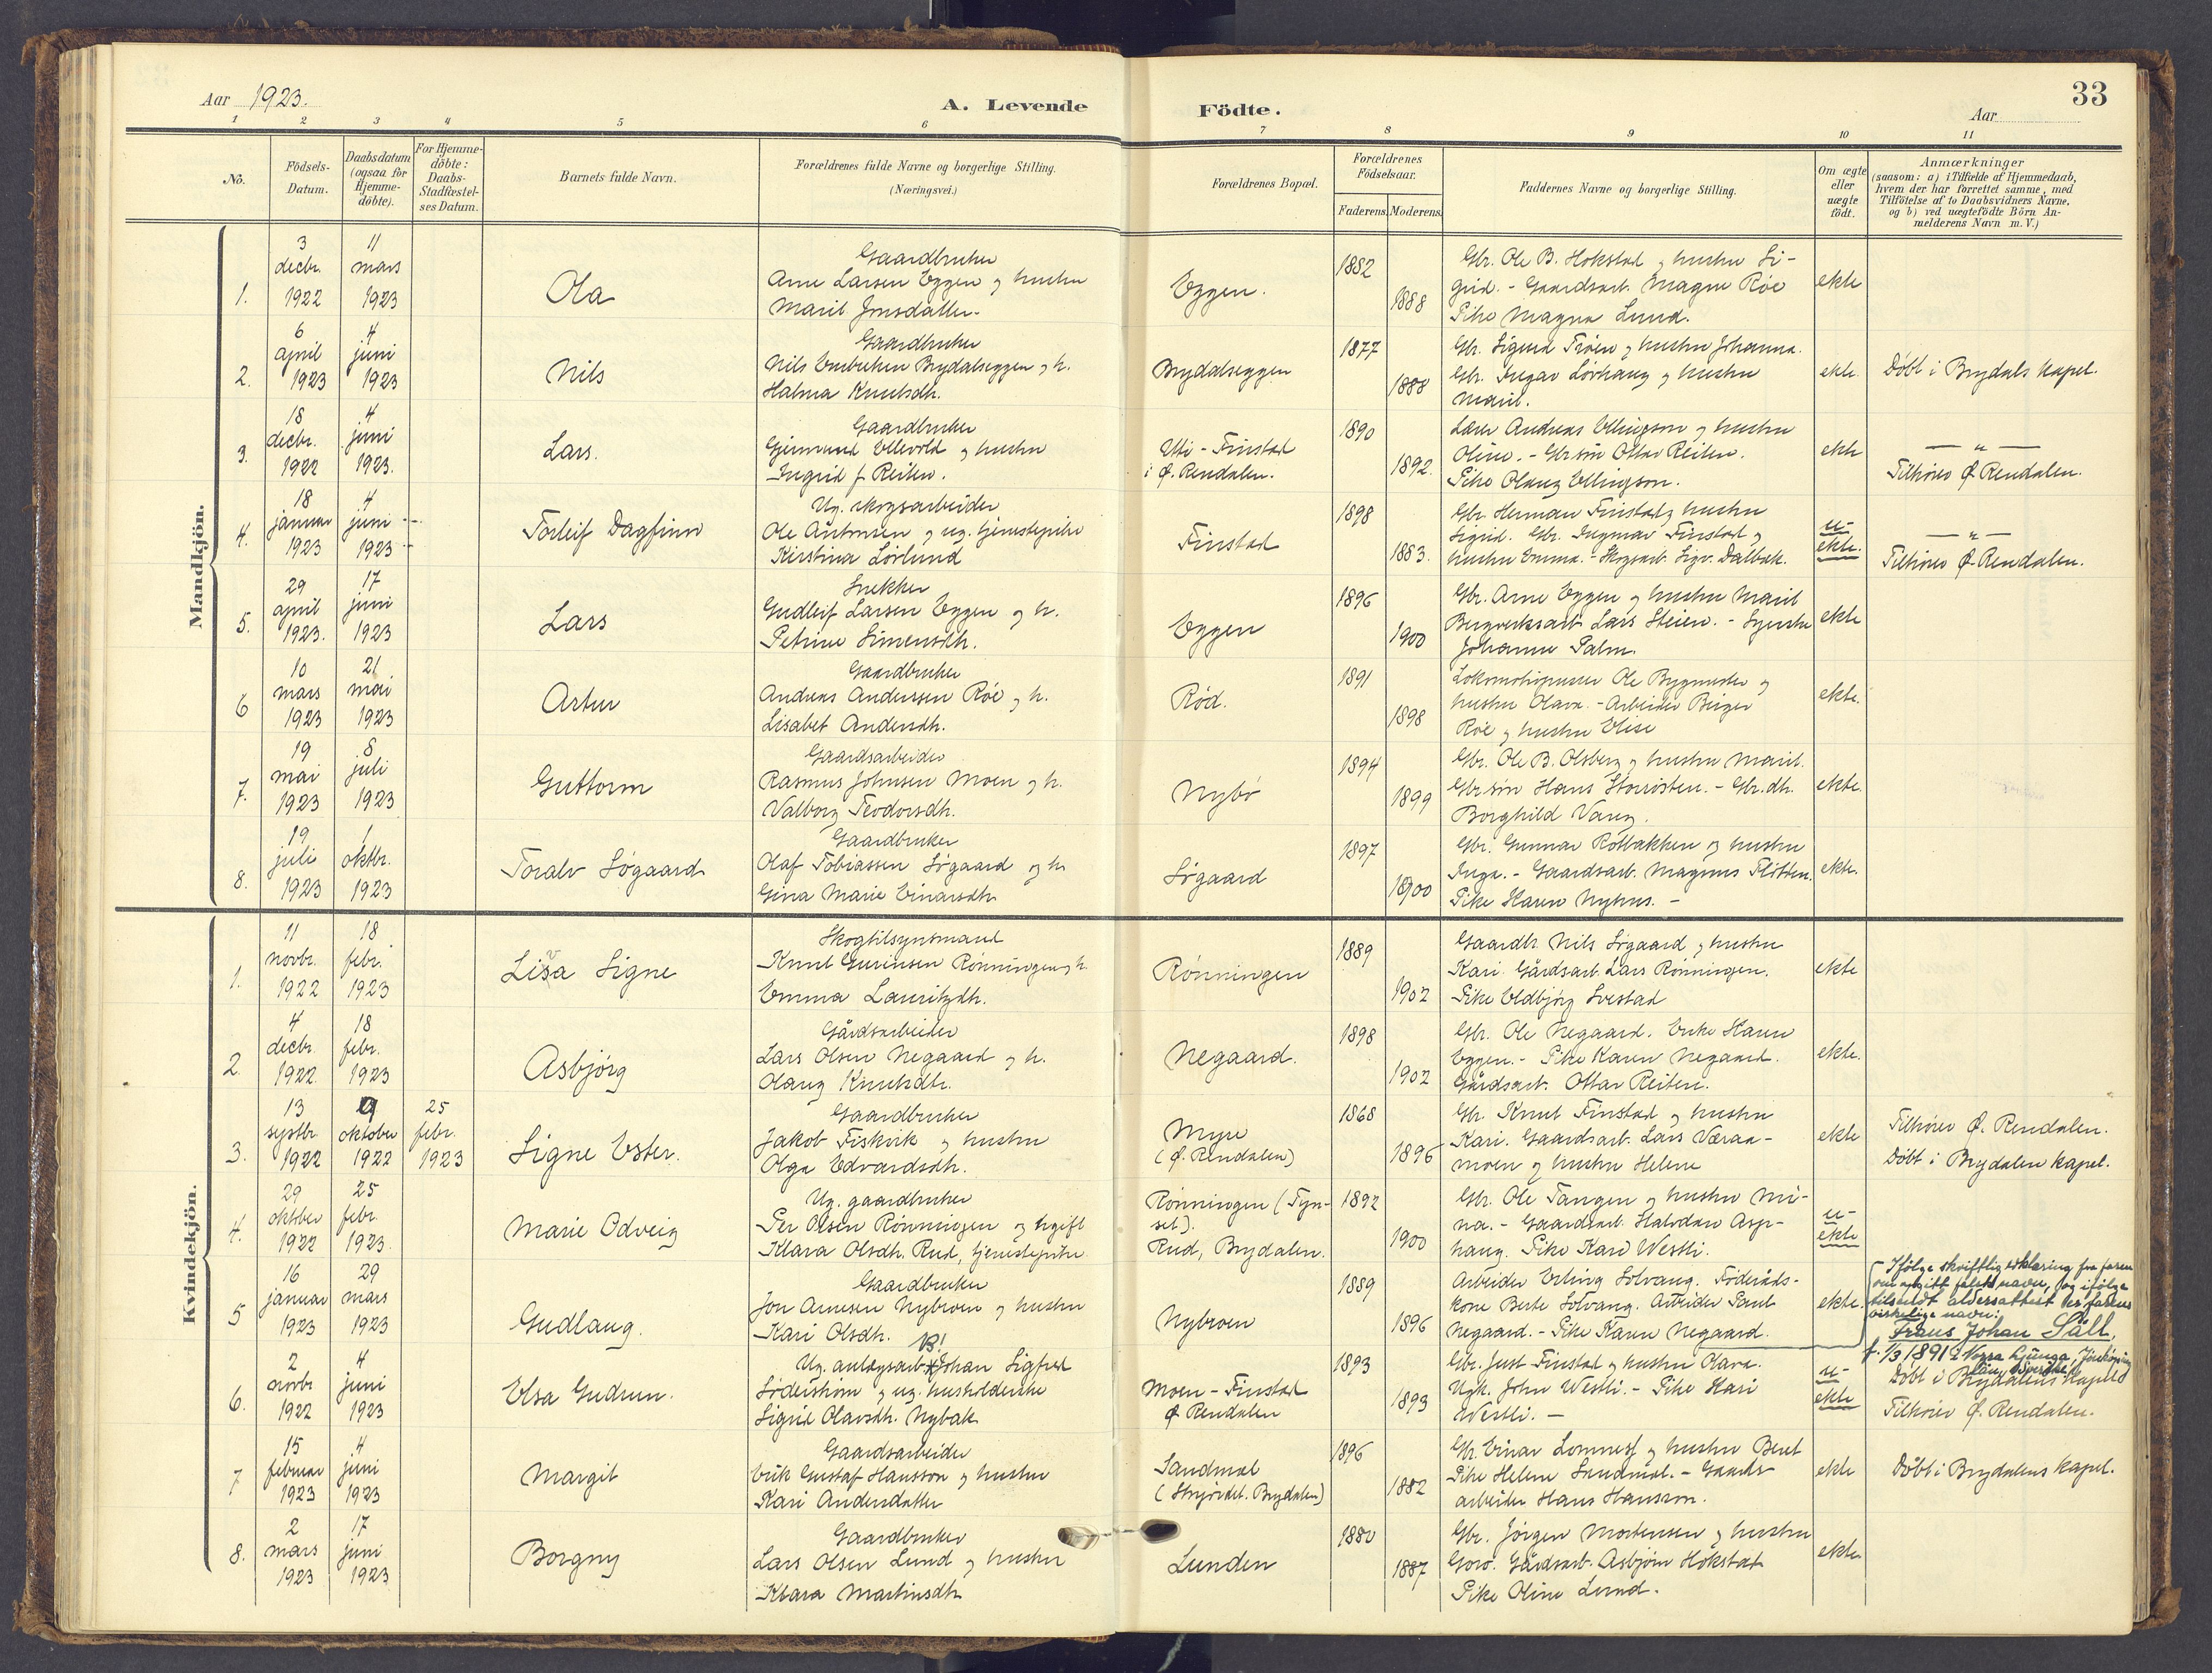 33
Aar 1923.
A. Levende
Födte.
Aar
1 2 3 4 5 6 7 8 9 10 11
No.
Födsels-
Datum.
Daabsdatum
(ogsaa for
Hjemme-
döbte).
For Hjemme-
döbte:
Daabs-
Stadfæstel-
ses Datum.
Barnets fulde Navn.
Forældrenes fulde Navne og borgerlige Stilling.
(Næringsvei.)
Forældrenes Bopæl.
Forældrenes
Födselsaar.
Faderens. Moderens.
Faddernes Navne og borgerlige Stilling.
Om ægte
eller
uægte
födt.
Anmærkninger
(saasom: a) i Tilfælde af Hjemmedaab,
hvem der har forrettet samme, med
Tilföielse af to Daabsvidners Navne,
og b) ved uægtefödte Börn An-
melderens Navn m. V.)
Mandkjön.
1.
3
decbr.
1922
11
mars
1923
Ola
Gaardbruker
Arne Larsen Eggen og hustru
Marit Jonsdatter.
Eggen.
1882
1888
Gbr. Ole B. Hokstad og hustru Si-
grid. - Gaardsarb. Magne Röe
Pike Magna Lund.
ekte
2.
6
april
1923
4
juni
1923
Nils
Gaardbruker
Nils Embretsen Brydalseggen og h.
Halma Knutsdtr.
Brydalseggen
1877
1888
Gbr. Sigurd Tröen og hustru Johanna.
Gbr. Ingar Lövhaug og hustru
Marit.
ekte.
Döbt i Brydals kapel.
3.
18
decbr.
1922
4
juni
1923.
Lars.
Gaardbruker
Gjermund Ellevold og hustru
Ingrid f. Reiten.
Uti-Finstad
i Ö. Rendalen.
1890
1892.
Lærer Andreas Ellingson og hustru
Oline. - Gbrsön Ottar Reiten.
Pike Olaug Ellingson.
ekte
— " —
Tilhörer Ö. Rendalen.
4.
18
januar
1923
4
juni
1923
Torleif Dagfinn
Ug. skogsarbeider
Ole Antonsen og ug. tjenestepike
Kirstina Lörlund
Finstad
1898
1883.
Gbr. Herman Finstad og hustru
Sigrid. Gbr. Ingmar Finstad og
hustru Emma. Skogsarb. Sigv. Dalbak.
u-
ekte.
— " —
Tilhörer Ö. Rendalen.
5.
29
april
1923.
17
juni
1923
Lars
Snekker
Gudleif Larsen Eggen og h.
Petrine Simensdtr.
Eggen
1896
1900
Gbr. Arne Eggen og hustru Marit
Bergverksarb. Lars Steien. - Syerske
Johanne Palm.
ekte
6
10
mars
1923
21
mai
1923
Artur
Gaardbruker
Andreas Andersen Röe og h.
Lisabet Andersdtr.
Röd.
1891
1898
Lokomotivpusser Ole Bygmester og
hustru Olava. - Arbeider Birger
Röe og hustru Elise
ekte.
7.
19
mai
1923
8
juli
1923
Guttorm
Gaardsarbeider
Rasmus Johnsen Moen og h.
Valborg Teodorsdtr.
Nybö
1894
1899
Gbr. Ole B. Olsberg og hustru Marit.
Gbrsön Hans Storrösten. - Gbr.dtr.
Borghild Vang.
ekte.
8.
19
juli
1923
1
oktbr.
1923
Toralv Sögaard
Gaardbruker
Olaf Tobiassen Sögaard og h.
Gina Marie Einarsdtr.
Sögaard
1897
1900
Gbr. Gunnar Rötbakken og hustru
Inga. - Gaardsarb. Magnus Plötten.
Pike Karen Nyhus. -
ekte.
Kvindekjön.
1.
11
novbr.
1922
18
febr.
1923
Lisa Signe
Skogtilsynsmand
Knut Gurinsen Rönningen og h.
Emma Lauritzdtr.
Rönningen
1889
1902
Gaardbr. Nils Sögaard og hustru
Kari. Gårdsarb. Lars Rönningen.
Pike Eldbjörg Svestad
ekte
2.
4
decbr.
1922
18
febr.
1923
Asbjörg
Gårdsarbeider
Lars Olsen Negaard og h.
Olaug Knutsdtr.
Negaard.
1898
1902
Gbr. Ole Negaard. Enke Karen
Eggen. - Pike Karen Negaard.
Gårdsarb. Ottar Reiten.
ekte.
3.
13
septbr.
1922
9
oktober
1922
25
febr.
1923
Signe Ester.
Gaardbruker
Jakob Fiskvik og hustru
Olga Edvardsdtr.
Myre
(Ö. Rendalen)
1868
1896
Gbr. Knut Finstad og hustru
Kari. Gaardsarb. Lars Væraa-
moen og hustru Helene
ekte
Tilhörer Ö. Rendalen.
Döbt i Brydalen kapel.
4.
29
oktober
1922
25
febr.
1923.
Marie Odveig
Ug. gaardbruker
Per Olsen Rönningen og ugift
Klara Olsdtr. Rud, tjenestepike.
Rönningen (Tyn-
set).
Rud, Brydalen.
1892
1900
Gbr. Ole Tangen og hustru Mi-
na. - Gaardsarb. Halvdan Asp-
haug. Pike Kari Westli.
u-
ekte
5
16
januar
1923
29
mars
1923
Gudlaug.
Gaardbruker
Jon Arnesen Nybroen og hustru
Kari Olsdtr.
Nybroen
1889
1896
Arbeider Erling Solvang. Föderåds-
kone Berte Solvang. Arbeider Paul
Negaard. - Pike Karen Negaard.
ekte.
Ifölge skriftlig erklaring fra faren
om opgitt falsk navn, og ifölge
tilsendt aldersattest er farens
virkelige navn:
Frans Johan Säll,
f. 1/3 1891 i Norra Ljunga, Jönköping
län, Sverike.
6.
2
novbr.
1922
4
juni
1923
Elsa Gudrun.
B!
Ug. anlægsarb. Johan Sigfred
Söderström og ug. husholderske
Sigrid Olavsdtr. Nybak
Moen-Finstad
Ö. Rendalen
1893
1893
Gbr. Just Finstad og hustru Klara.
Ugk. John Westli. - Pike Kari
Westli. -
u-
ekte
Döbt i Brydalens kapel
Tilhörer Ö. Rendalen.
7
15
februar
1923
4
juni
1923
Margit
Gaardsarbeider
Erik Gustaf Hansson og hustru
Kari Andersdatter
Sandmæl
1896
1882
Gbr. Einar Lomnes og hustru Berit
Pike Helene Sandmæl. - Gaards-
arbeider Hans Hansson.
ekte
Döbt i Brydalens kapel.
8.
2
mars
1923
17
juni
1923
Borgny
Gaardbruker
Lars Olsen Lund og hustru
Klara Martinsdtr.
Lunden
1880
1887
Gbr. Jörgen Mortensen og hustru
Goro. Gårdsarb. Asbjörn Hokstad
Pike Oline Lund.
ekte